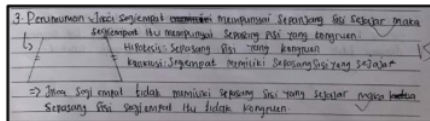 3. Perumuman → Jika segiempat mempunyai sepasang sisi sejajar maka
segiempat itu mempunyai sepasang sisi yang kongruen.
Hipotesis: sepasang sisi yang kongruen
konklusi: segiempat memiliki sepasang sisi yang sejajar
=> Jika segi empat tidak memiliki sepasang sisi yang sejajar maka
sepasang sisi segi empat itu tidak kongruen.